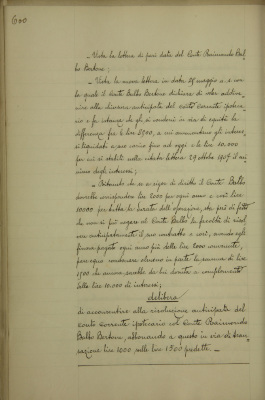 600
- Vista la lettera di pari data del Conte Raimondo Bal-
bo Bertone;
- Vista la nuova lettera in data 25 maggio u. s. con
la quale il Conte Balbo Bertone dichiara di voler addive-
nire alla chiusura anticipata del conto corrente ipoteca-
rio e fa istanza che gli si condoni in via di equità la
differenza fra le lire 8500, a cui ammontano gli interessi
liquidati a suo carico fino ad oggi e le lire 10.000
per cui si stabilì nella citata lettera 29 ottobre 1907 il mi-
nimo degli interessi;
- Ritenuto che se a rigor di diritto il Conte Balbo
dovrebbe corrispondere lire 2000 per ogni anno e così lire
10000 per tutta la durata dell'operazione, sta però di fatto
che non si può negare al Conte Balbo la facoltà di risol-
vere anticipatamente il suo contratto e così, avendo egli
finora pagato ogni anno più delle lire 2000 convenute,
pare equo condonare almeno in parte la somma di lire
1500 che ancora sarebbe da lui dovuta a complemento
delle lire 10.000 di interessi;
delibera
di acconsentire alla risoluzione anticipata del
conto corrente ipotecario col Conte Raimondo
Balbo Bertone, abbonando a questo in via di tran-
sazione lire 1000 sulle lire 1500 predette. -